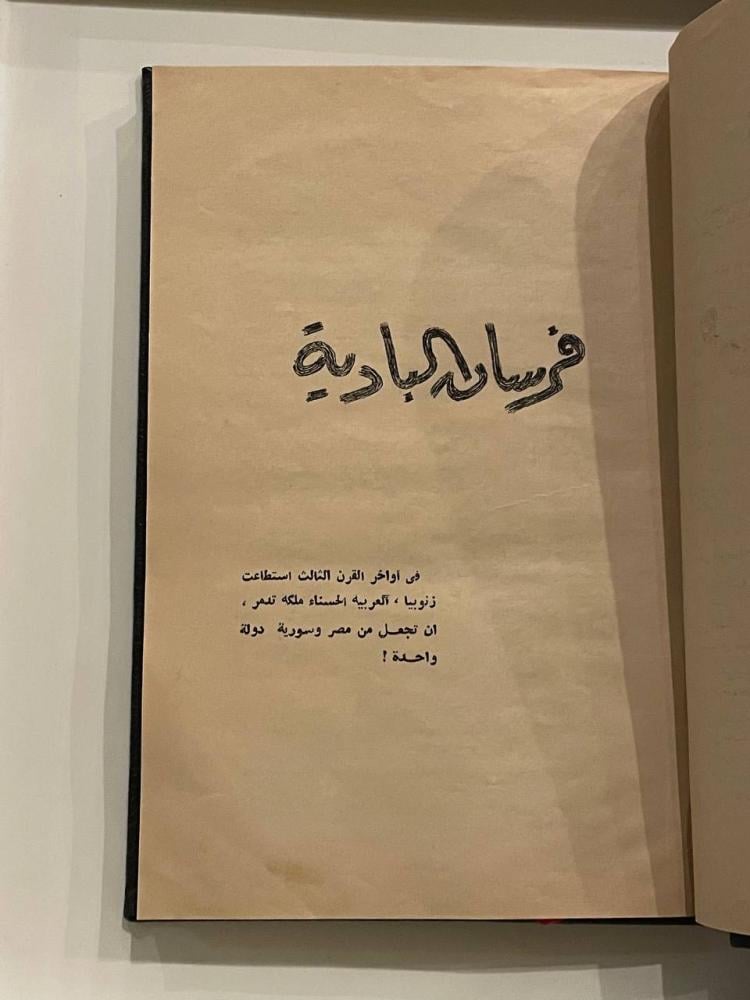 فرسان البادية
فى أواخر القرن الثالث استطاعت
زنوبيا ، العربيه الحسناء ملكه تدمر ،
ان تجعل من مصر وسورية دولة
واحدة !